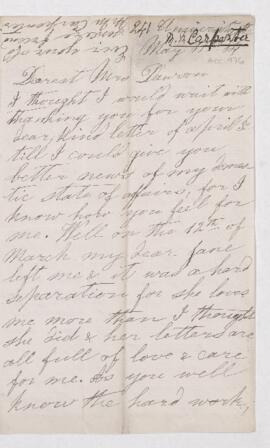 241
May
B. R. Carpenter
Dearest Mrs Dawson
I thought I would wait with
thanking you for your
dear, kind letter of April 6
till I could give you
better news of my domes
tic state of affairs, for I
know how you feel for
me. Well on the 12th of
March my dear Jane
left me & it was a hard
separation for she loves
me more than I thought
she did & her letters are
all full of love & care
for me. As you well
know the hard work,